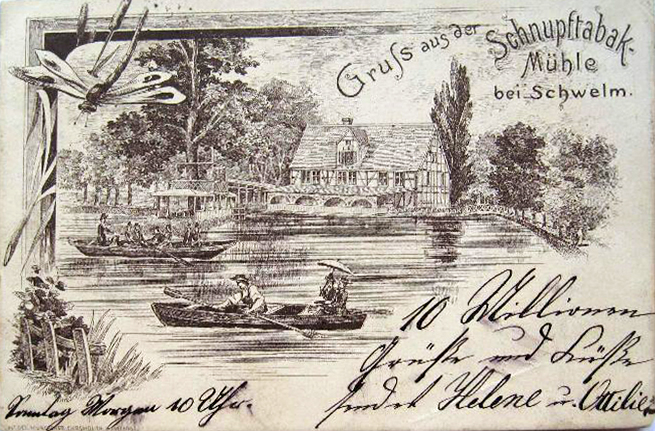 Gruss aus der
Schnupftabak-
Mühle
bei Schwelm.
10 Millionen
Grüße und Küße
sendet Helene u. Ottilie.
Sonntag Morgen 10 Uhr.